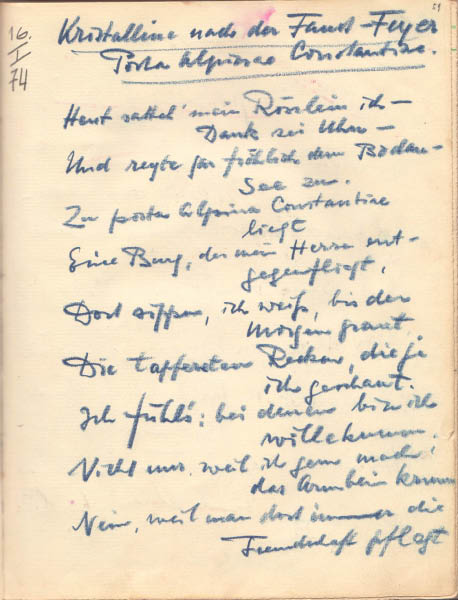 16.
I
74
Kristalline nach der Faust-Feyer
Porta Alpinae Constantiae.
Heut sattel' mein Rösslein ich –
Dank sei Uhu –
Und reyte gar fröhlich dem Boden-
See zu.
Zu porta Alpina Constantiae
liegt
Eine Burg, der mein Herze ent-
gegenfliegt,
Dort sippen, ich weiß, bis der
Morgen graut
Die tapfersten Recken, die je
ich geschaut.
Ich fühl's: bei denen bin ich
willekumm.
Nicht nur, weil ich gern mache
das Armbein krumm
Nein, weil man dort immer die
Freundschaft pflegt